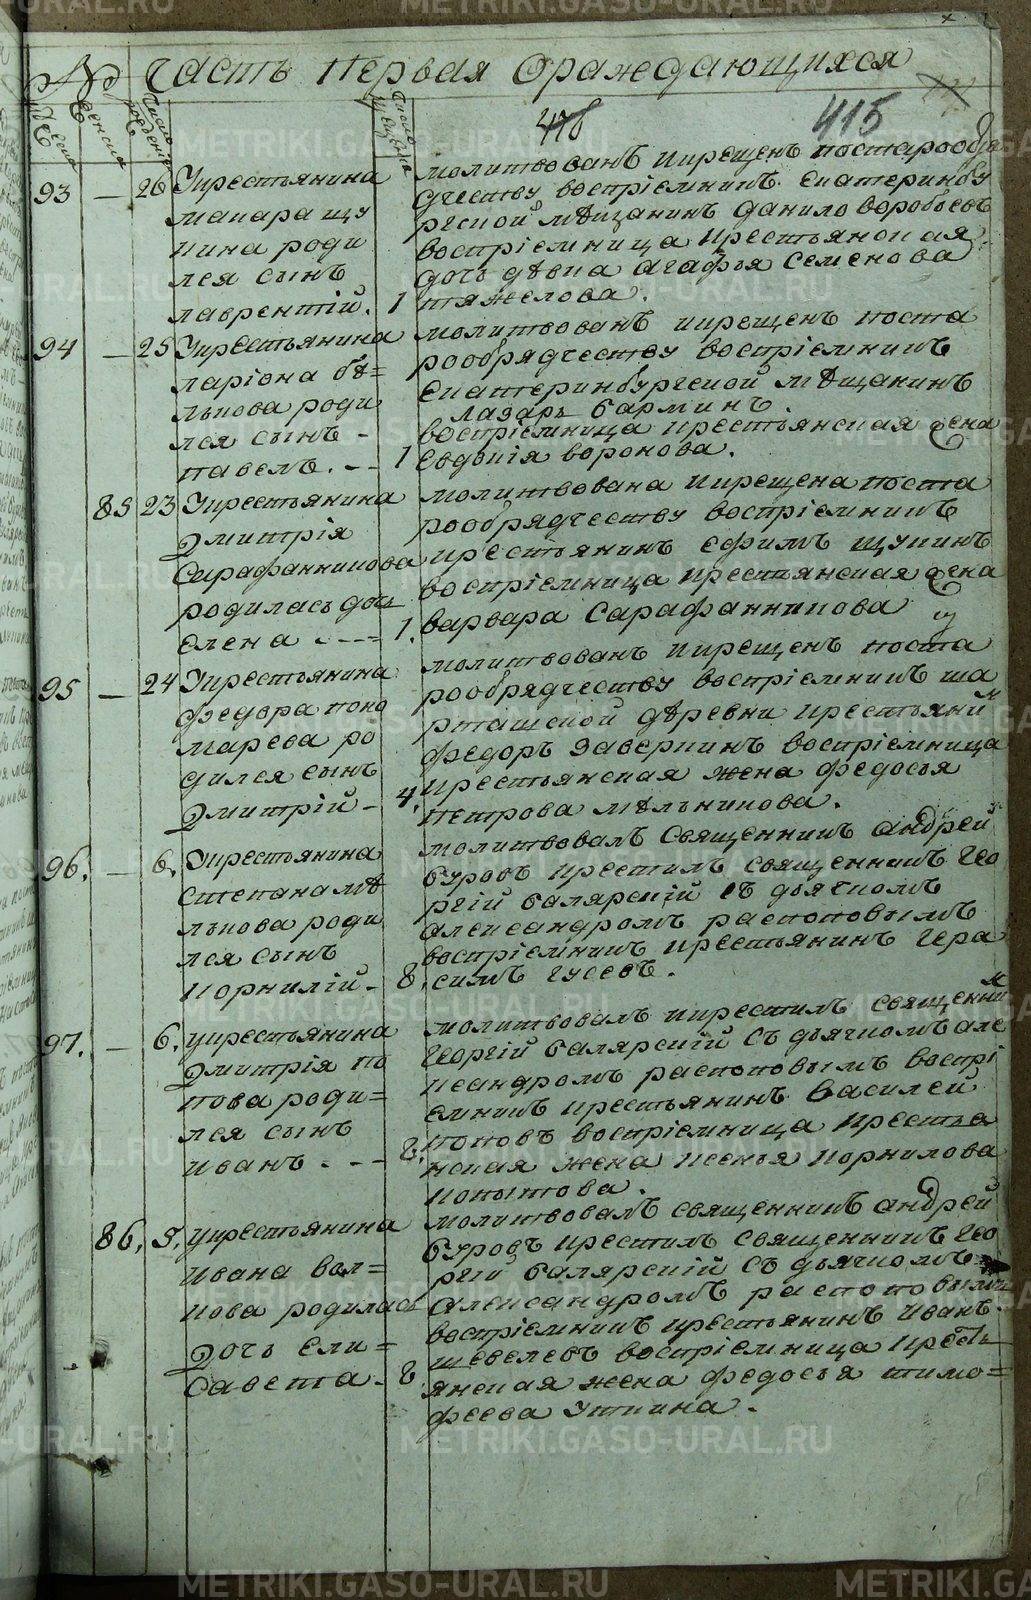 № Часть первая Ораждающихся
Мужеска
Женска
Число рождения
Число крещения
418
415
93 — 26 Укрестьянина
макара щу
кина роди
лся сынъ
лаврентїй. 1
молитвованъ икрещенъ постарообря
дчеству воспрїемникъ Екатеринбу
ргской мѣщанинъ данило воробьевъ
воспрїемница крестьянская
дочь дѣвка агафья Семенова
тяжелова.
94 — 25 Укрестьянина
ларїона бѣ=
лькова роди
лся сынъ -
павелъ. -- 1
молитвованъ икрещенъ поста
рообрядчеству воспрїемникъ
Екатеринбургской мѣщанинъ
лазарь барминъ.
воспрїемница крестьянская жена
Евдокїя воронова.
85 23 Укрестьянина
Дмитрїя
Сарафанникова
родилась дочь
елена . --- 1.
молитвована икрещена поста
рообрядчеству воспрїемникъ
крестьянинъ ефимъ щукинъ
воспрїемница крестьянская жена
варвара Сарафанникова
95 — 24 Укрестьянина
федора поно
марева ро
дился сынъ
Дмитрїй - 4.
молитвованъ икрещенъ поста
рообрядчеству воспрїемникъ ша
рташской деревни крестьянинъ
федоръ Заверткинъ воспрїемница
крестьянская жена федосья
петрова мѣльникова.
96. — 6. Укрестьянина
степана мѣ
лькова роди
лся сынъ
корнилїй - 8.
молитвовалъ священникъ андрей
буровъ крестилъ священникъ гео
ргїй балярскїй съ дьячкомъ
александромъ распоповымъ
воспрїемникъ крестьянинъ гера
симъ гусевъ.
97. — 6. укрестьянина
Дмитрїя по
пова роди=
лся сынъ
иванъ . -- 8.
молитвовалъ икрестилъ священни
георгїй балярскїй съ дьячкомъ але
ксандромъ распоповымъ воспрї
емникъ крестьянинъ василей
поповъ воспрїемница крестья
нская жена ксенья корнилова
копытова.
86. 5. укрестьянина
ивана вол=
кова родилась
Дочь ели=
савета - 8
молитвовалъ священникъ андрей
буровъ крестилъ священникъ гео
ргїй балярскїй съ дьячкомъ
александромъ распоповымъ
воспрїемникъ крестьянинъ иванъ
шевелевъ воспрїемница кресть
янская жена федосья тимо=
феева Уткина.
METRIKI.GASO-URAL.RU